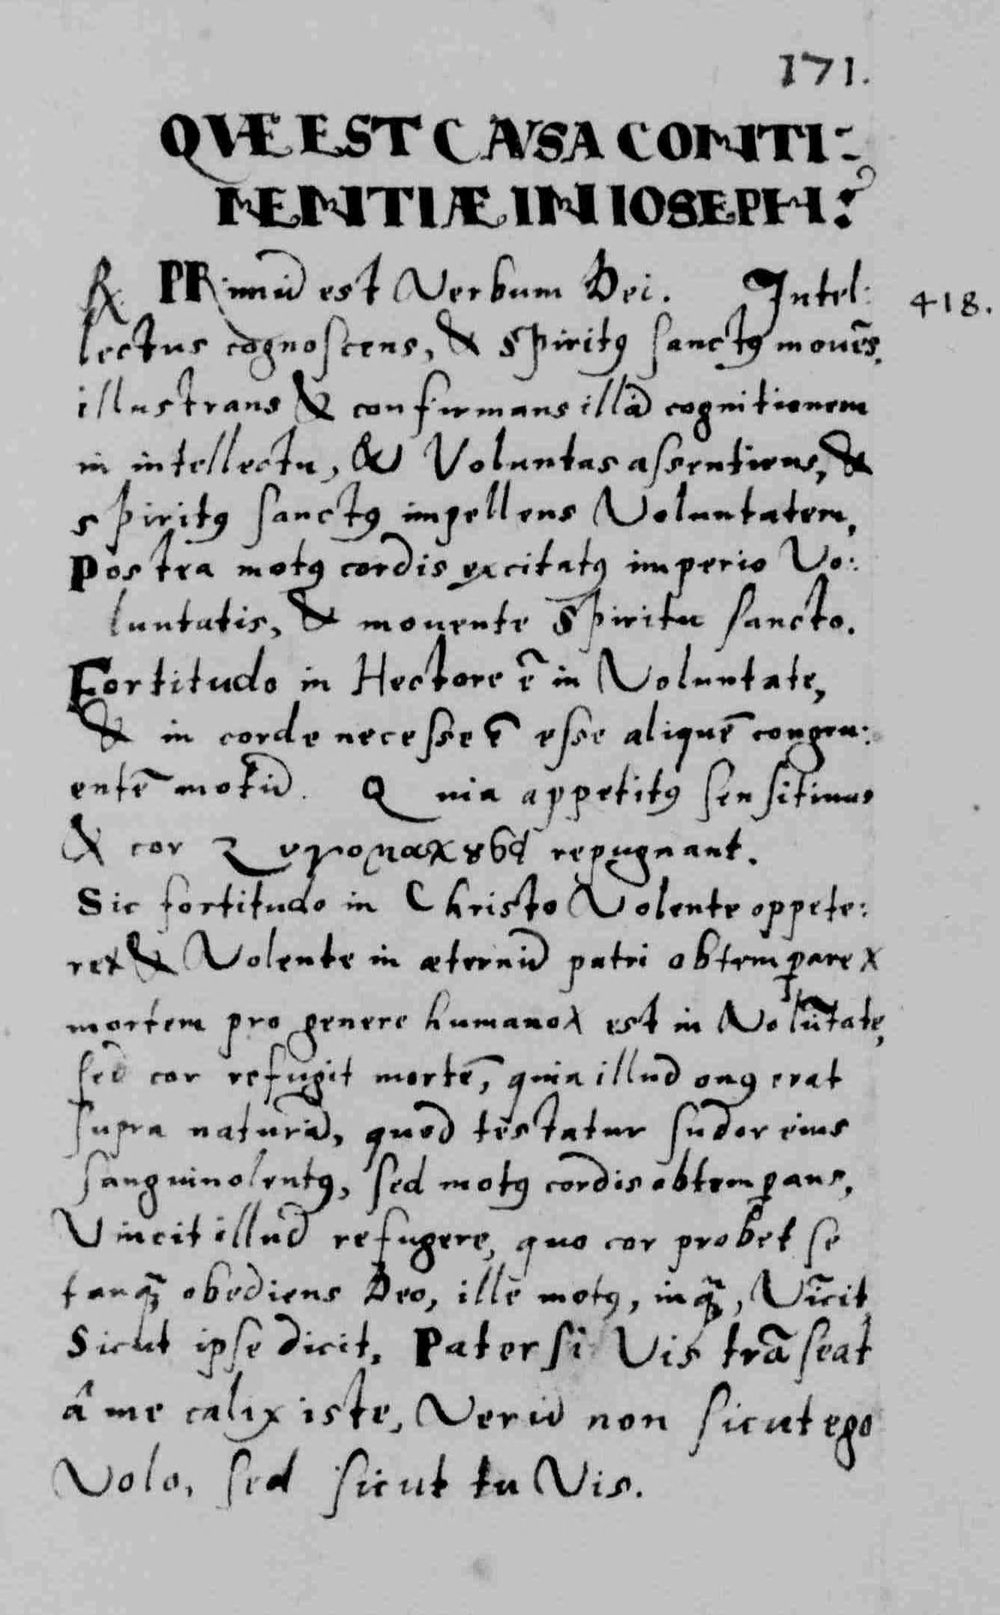 171.
QVÆ EST CAVSA CONTI:
NENTIÆ IN IOSEPH?
℟ PRimũ est Verbum Dei. Intel: 418.
lectus cognoſcens, & Spiritꝰ ſanctꝰ mouẽs,
illustrans & confirmans illã cognitionem
in intellectu, & Voluntas aſsentiens, &
spiritꝰ ſanctꝰ impellens Voluntatem,
Postea motꝰ cordis excitatꝰ imperio Vo:
luntatis, & mouente Spiritu ſancto.
Fortitudo in Hectore ẽ in Voluntate,
& in corde neceſse ẽ eſse aliquẽ congru:
entẽ motũ. Quia appetitꝰ ſenſitiuus
& cor repugnant.
Sic fortitudo in Christo Volente oppete:
re x & Volente in æternũ patri obtemꝑare x
mortem pro genere humano x est in Volũtate,
ſed cor refugit mortẽ, quia illud onꝰ erat
ſupra naturã, quod testatur ſudor eius
ſanguinolentꝰ, ſed motꝰ cordis obtemꝑans,
Vincit illud refugere, quo cor probet ſe
tanꝗ̃ obediens Deo, ille motꝰ, inꝗ̃, Vĩcit
Sicut ipſe dicit, Pater ſi Vis trãſeat
â me calix iste, Verũ non ſicut ego
Volo, ſed ſicut tu Vis.